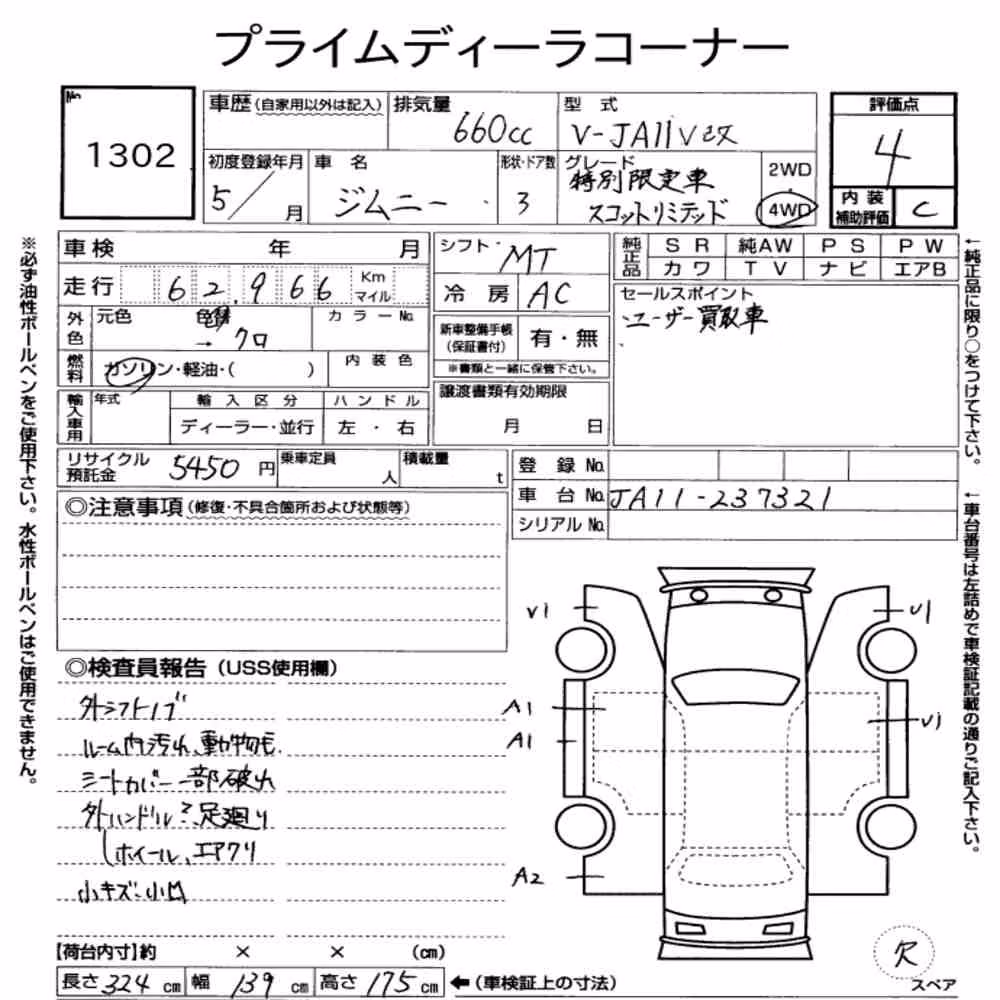 プライムディーラコーナー
No.
1302
車歴(自家用以外は記入)
排気量
660cc
型式
V-JA11V改
評価点
4
初度登録年月
5/ 月
車名
ジムニー
形状・ドア数
3
グレード
特別限定車
スコットリミテッド
2WD
4WD
内装
補助評価
C
車検 年 月
走行 62,966 Km
マイル
外色
元色
色替
→ クロ
カラーNo.
燃料
ガソリン・軽油・( )
内装色
輸入車用
年式
輸入区分
ディーラー・並行
ハンドル
左・右
シフト・
MT
冷房
AC
新車整備手帳
(保証書付)
有・無
※書類と一緒に保管下さい。
譲渡書類有効期限
月 日
純正品
SR 純AW PS PW
カワ TV ナビ エアB
セールスポイント
・ユーザー買取車
リサイクル
預託金
5450 円
乗車定員
人
積載量
t
登録No.
車台No. JA11-237321
シリアルNo.
◎注意事項(修復・不具合箇所および状態等)
◎検査員報告(USS使用欄)
外シフトノブ
ルーム内汚れ、動物毛
シートカバー一部破れ
外ハンドル?足廻り
ホイール、エアクリ
小キズ・小凹
【荷台内寸】約 × × (cm)
長さ 324 cm 幅 139 cm 高さ 175 cm ←(車検証上の寸法)
V1
A1
A1
A2
U1
U1
欠
スペア
※必ず油性ボールペンをご使用下さい。水性ボールペンはご使用できません。
←純正品に限り○をつけて下さい。
←車台番号は左詰めで車検証記載の通りご記入下さい。